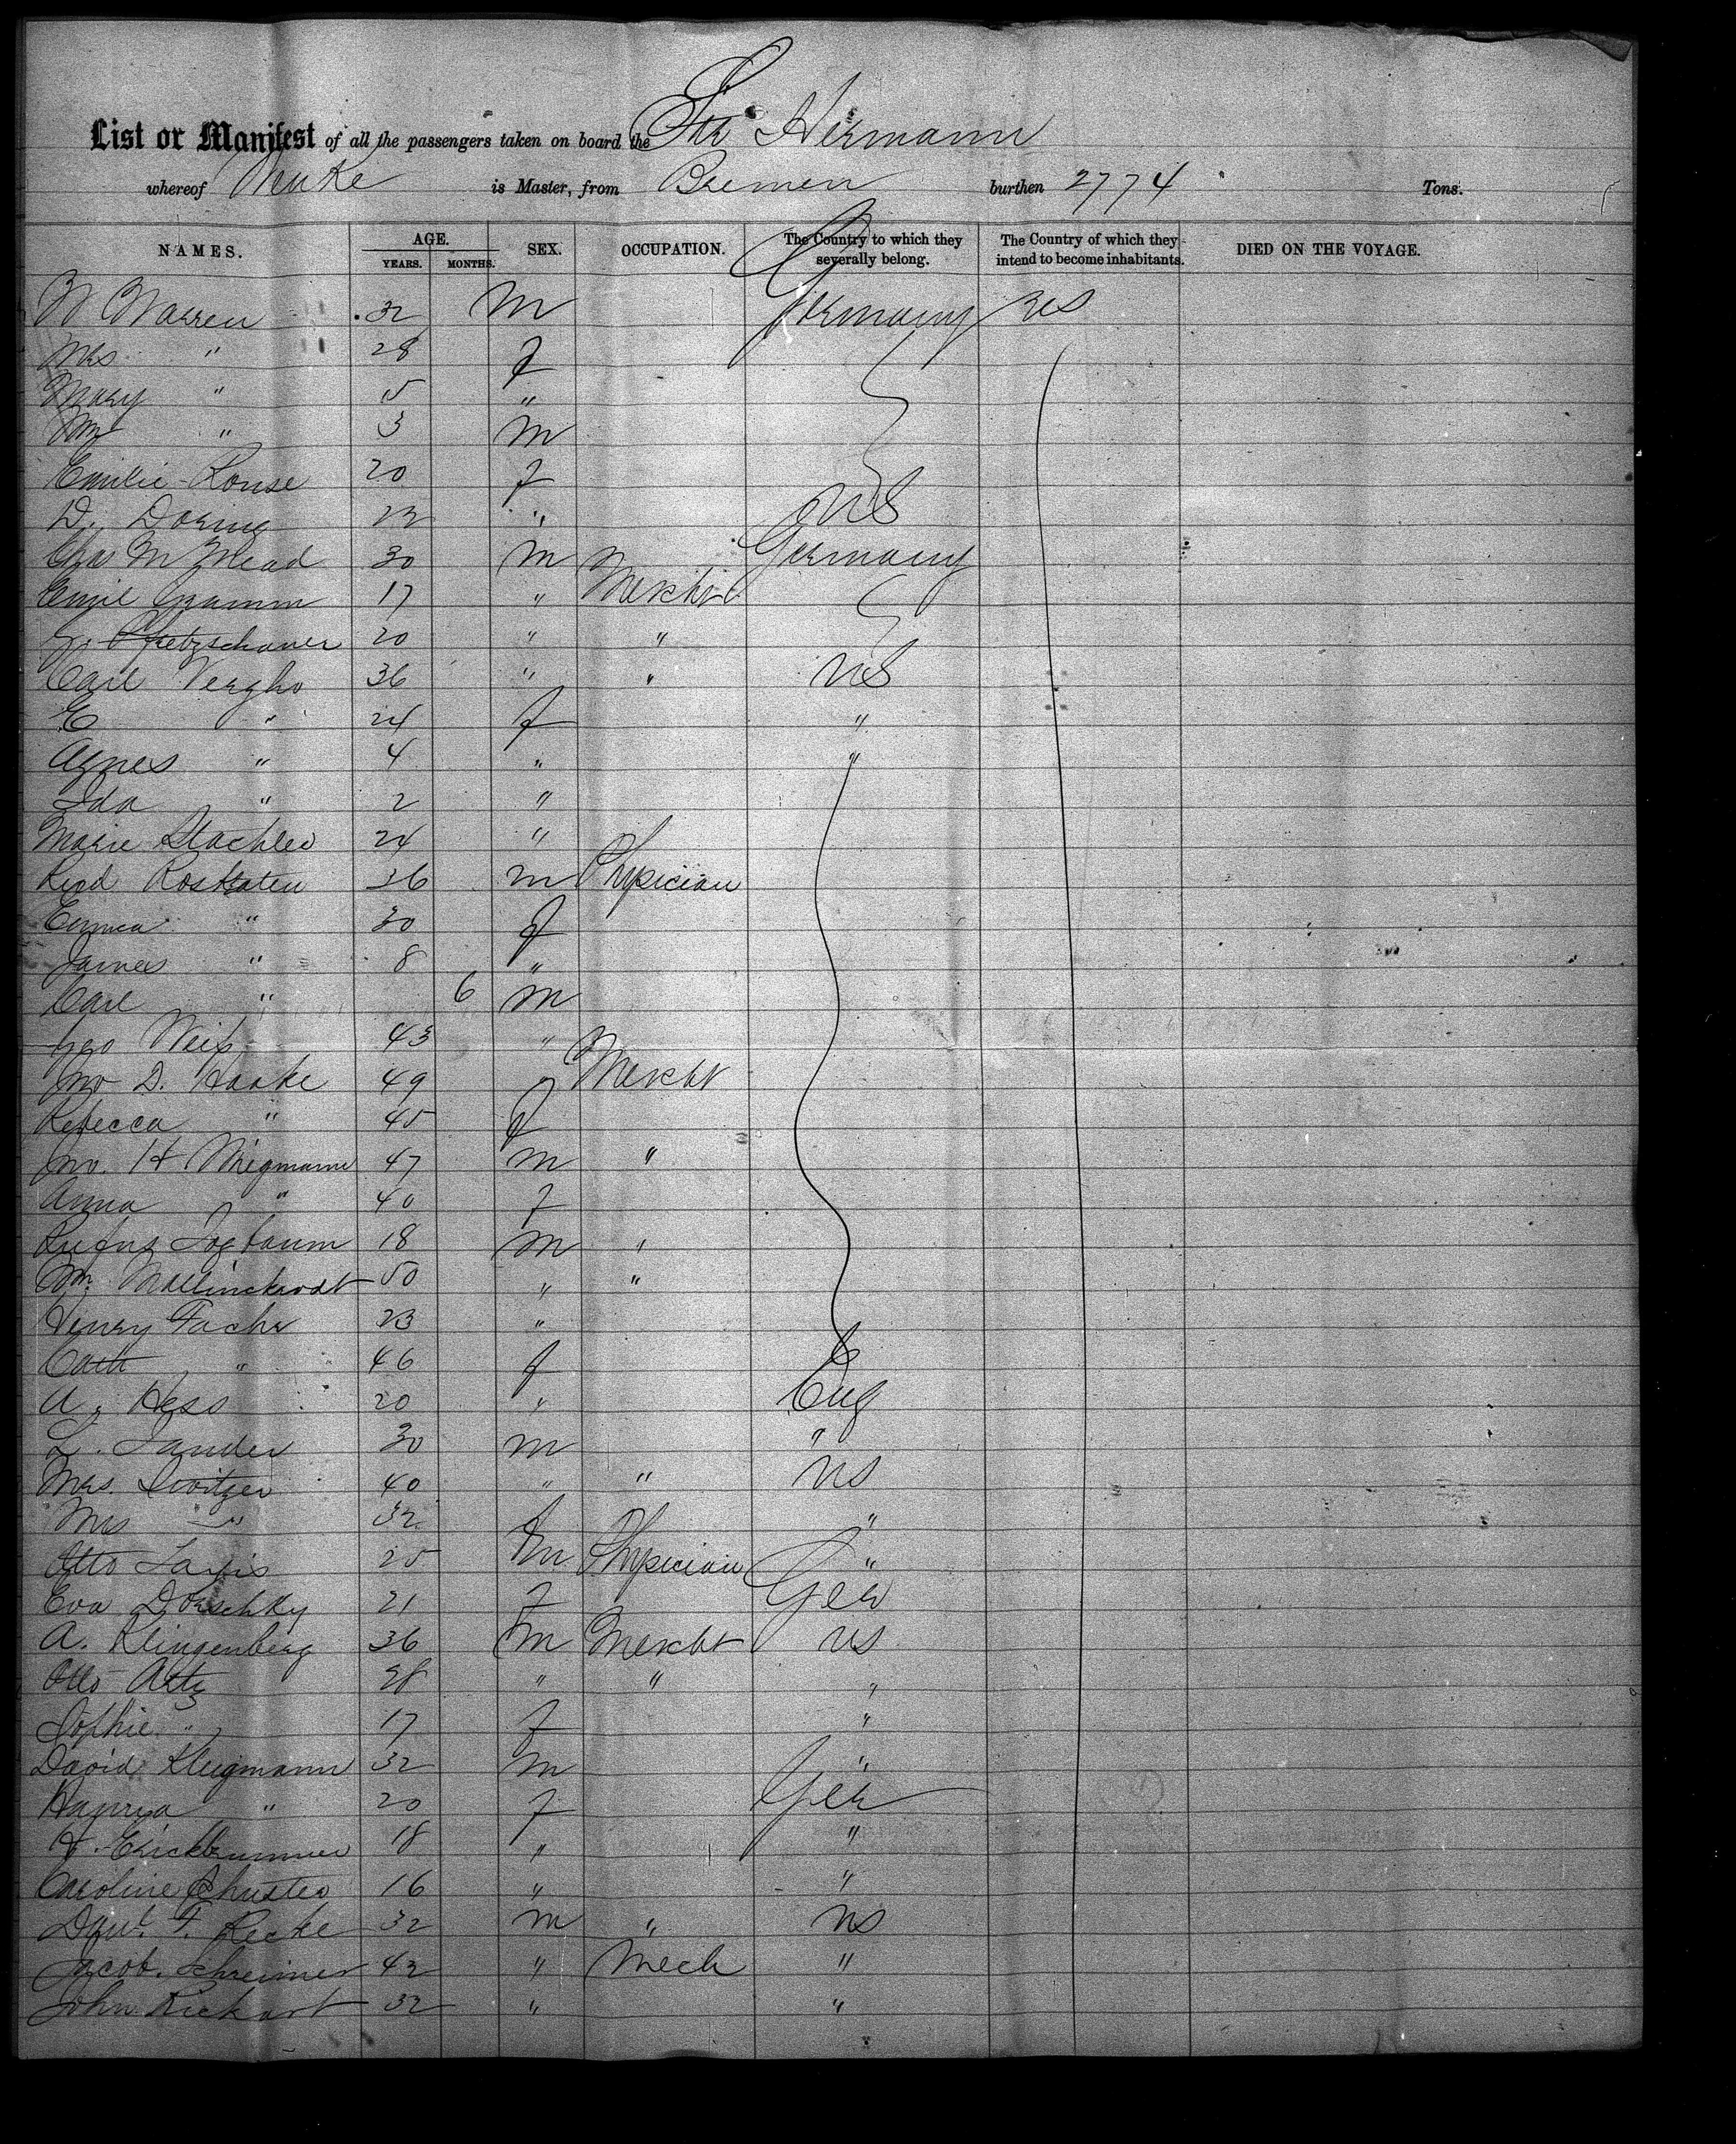 List or Manifest of all the passengers taken on board the Str Hermann
whereof is Master, from Bremen burthen 2774 Tons.
NAMES. AGE. YEARS. MONTHS. SEX. OCCUPATION. The Country to which they severally belong. The Country of which they intend to become inhabitants. DIED ON THE VOYAGE.
W Warren 32 M Germany US
Mrs " 28 f
Mary " 15 "
Wm " 3 M
Emilie Rouse 20 f
D. Doring 22 " US
Chs M Mead 30 M Germany
Emil Gramm 17 " Mercht
G. 20 " "
Carl Vergho 36 " " US
E " 24 f "
Agnes " 4 " "
Ida " 2 "
Marie Stachler 24 "
36 m Physician
Emma " 30 f
James " 8 "
Carl " 6 m
Geo Weiss 43 "
Jno D. Haake 49 " Mercht
Rebecca " 45 f
Jno. H Wiegmann 47 m "
Anna " 40 f
Rufus Zogbaum 18 m "
Wm. Mallinckrodt 50 " "
Henry 23 "
Cath " 46 f
A. Hess 20 " Eng
L. Sander 30 m "
Mrs. Switzer 40 " " US
Mrs " 32 "
Otto 25 m Physician "
Eva Dorschky 21 f Ger
A. Klingenberg 36 m Mercht US
Otto Artz 28 " " "
Sophie " 17 f "
David Kliegmann 32 m "
" 20 f Ger
18 " "
Caroline Schuster 16 " "
F. Recke 32 m " US
Jacob. Schreiner 42 " Mech "
John Rickart 32 " "